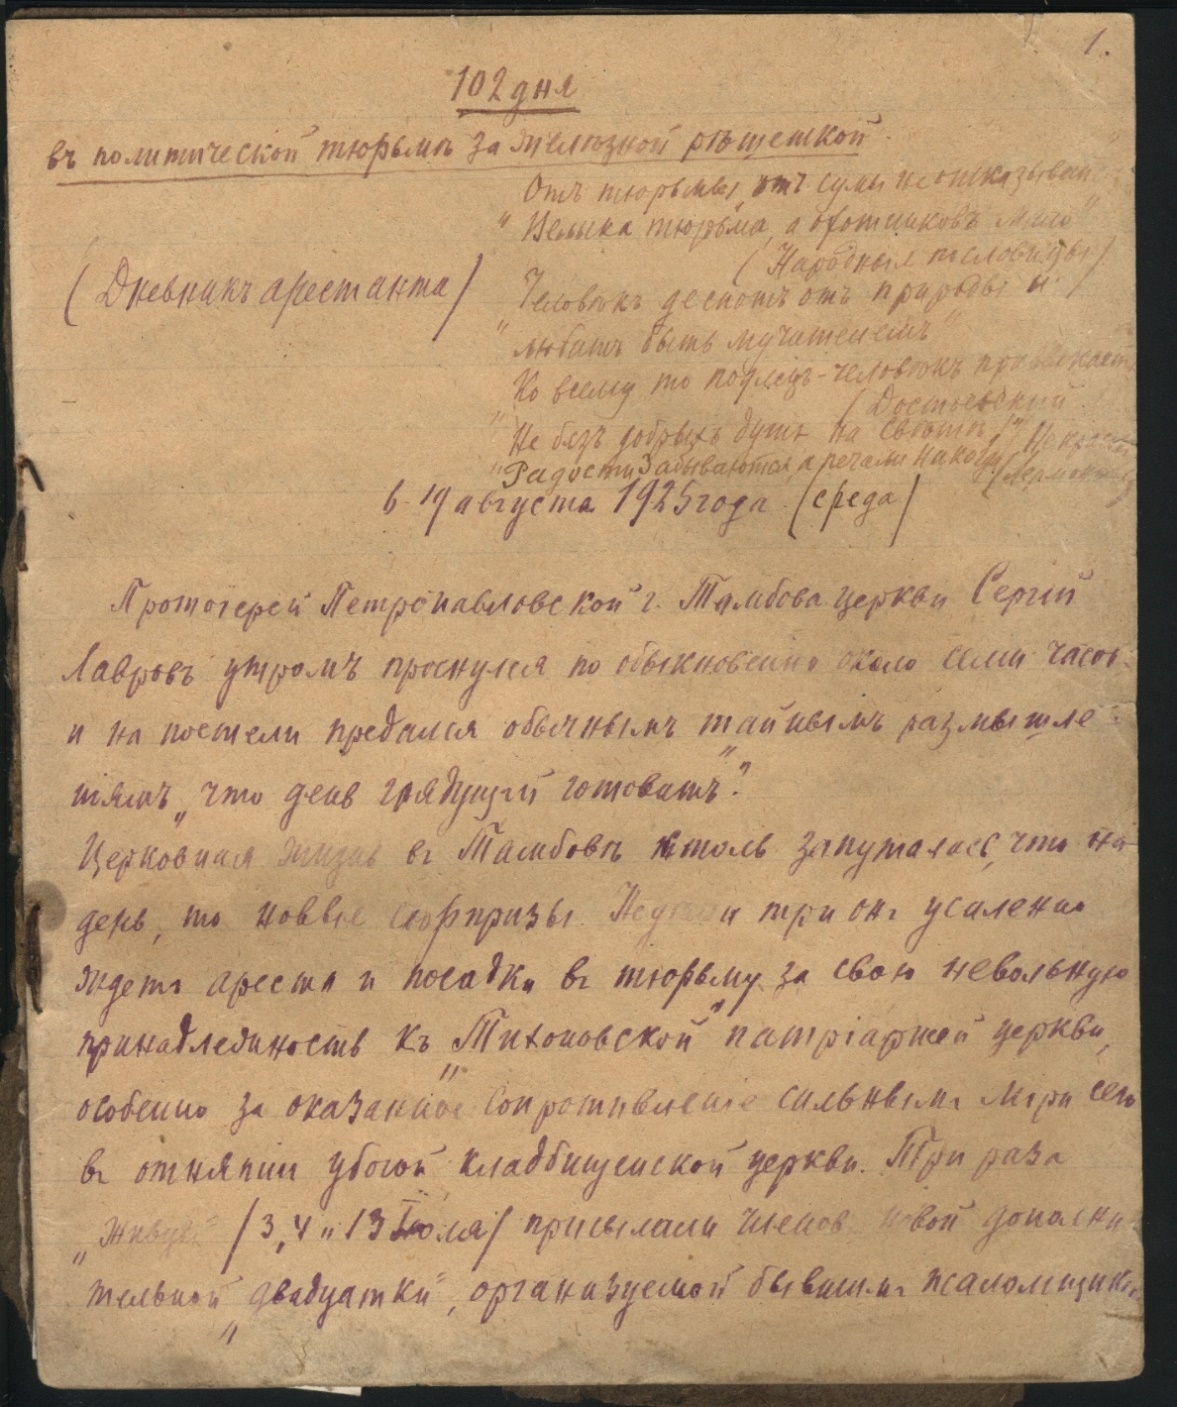 1.
102 дня
въ политической тюрьмѣ за желѣзной рѣшеткой.
Отъ тюрьмы, отъ сумы не отказывайся
"Велика тюрьма, а охотниковъ мало"
(Народныя пословицы)
(Дневникъ арестанта)
Человѣкъ деспотъ отъ природы и
"любитъ быть мучителемъ"
Ко всему то подлецъ-человѣкъ привыкаетъ
(Достоевский
"Не безъ добрыхъ душъ на свѣтѣ"!
"Радости забываются, а печали никогда (Лермонтовъ
6-19 августа 1925 года (среда)
Протоіерей Петропавловской г. Тамбова церкви Сергій
Лавровъ утромъ проснулся по обыкновенію около семи часов
и на постели предался обычнымъ тайнымъ размышле-
ніямъ „что день грядущій готовитъ"?
Церковная жизнь въ Тамбовѣ столь запуталась, что на
день, то новые сюрпризы. Недѣли три он усиленно
ждетъ ареста и посадки въ тюрьму за свою невольную
принадлежность къ „Тихоновской" патріаршей церкви,
особенно за оказанное сопротивленіе сильнымъ міра сего
въ отнятіи убогой кладбищенской церкви. Три раза
„живцы" (3, 4 и 13 Іюля) присылали членов новой дополни-
тельной „двадцатки", организуемой бывшимъ псаломщикомъ